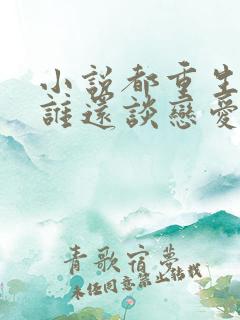 小說都重生
誰還談戀愛
青歌宿夢
未經同意禁止轉載